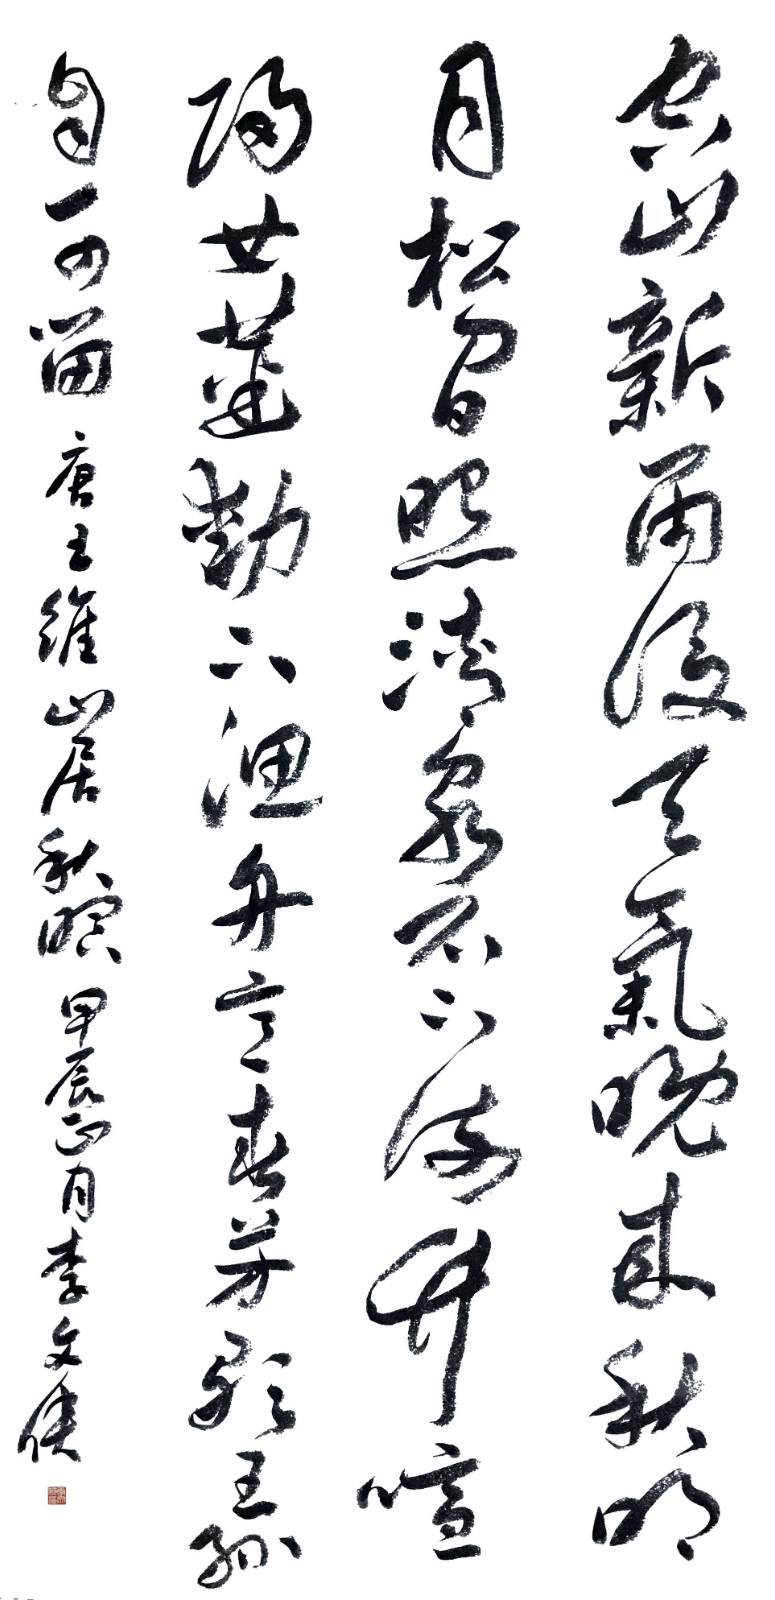 空山新雨後天氣晚來秋明
月松間照清泉石上流竹喧
歸女蓮動下漁舟意春芳歇王孫
自可留 唐王維山居秋暝 甲辰正月李文